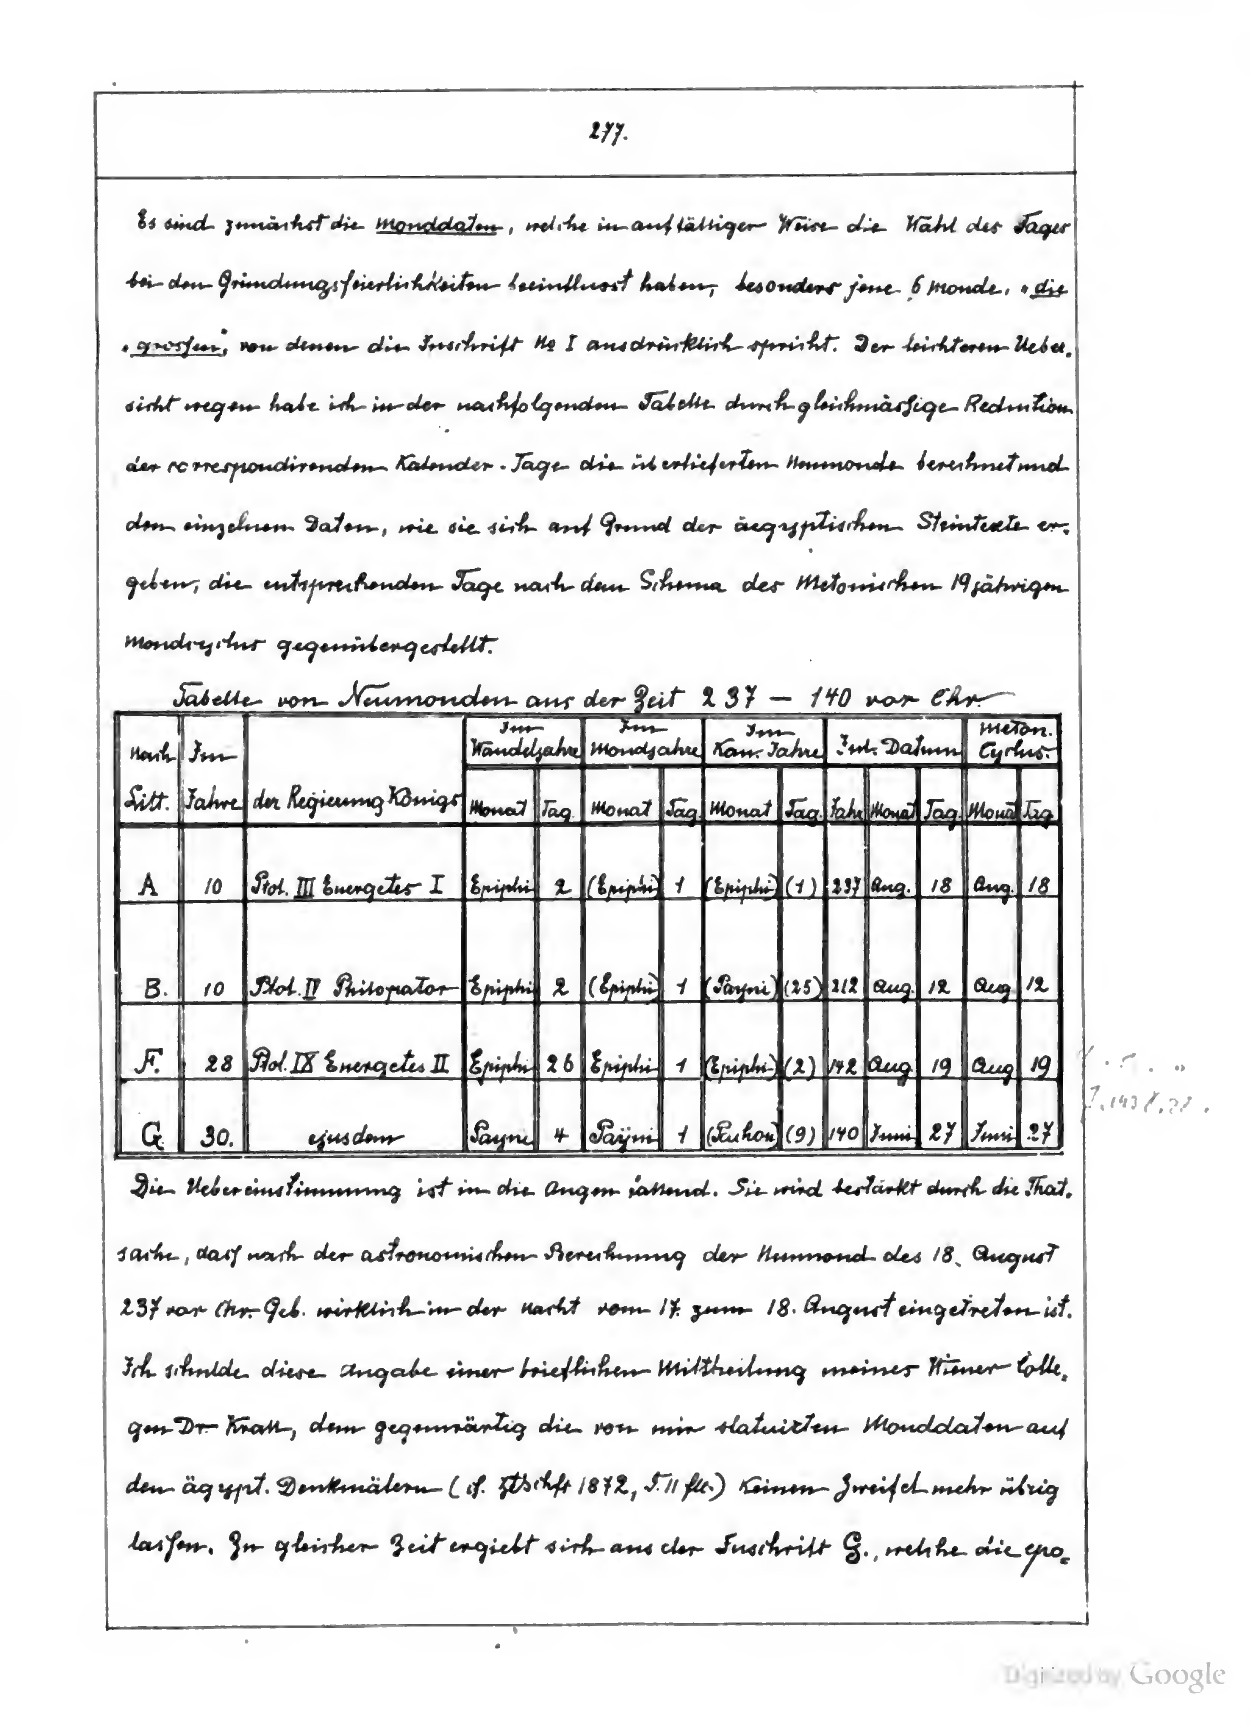 277.
Es sind zunächst die Monddaten, welche in auffälliger Weise die Wahl des Tages
bei den Gründungsfeierlichkeiten beeinflusst haben, besonders jene 6 Monde, „die
„grossen", von denen die Inschrift No I ausdrücklich spricht. Der leichteren Ueber-
sicht wegen habe ich in der nachfolgenden Tabelle durch gleichmässige Reduction
der correspondirenden Kalender-Tage die überlieferten Neumonde berechnet und
den einzelnen Daten, wie sie sich auf Grund der äegyptischen Steintexte er-
geben, die entsprechenden Tage nach dem Schema des Metonischen 19jährigen
Mondcyclus gegenübergestellt.
Tabelle von Neumonden aus der Zeit 237 — 140 vor Chr.
Nach Litt. | Im Jahre | der Regierung Königs | Im Wandeljahre | Im Mondjahre | Im Kan. Jahre | Jul. Datum | Meton. Cyclus.
Monat | Tag. | Monat | Tag. | Monat | Tag. | Jahr | Monat | Tag. | Monat | Tag
A | 10 | Ptol. III Euergetes I | Epiphi | 2 | (Epiphi) | 1 | (Epiphi) | (1) | 237 | Aug. | 18 | Aug. | 18
B. | 10 | Ptol. IV Philopator | Epiphi | 2 | (Epiphi) | 1 | (Payni) | (25) | 212 | Aug. | 12 | Aug | 12
F. | 28 | Ptol. IX Euergetes II | Epiphi | 26 | Epiphi | 1 | (Epiphi) | (2) | 142 | Aug | 19 | Aug | 19
G | 30. | ejusdem | Payni | 4 | Payni | 1 | (Pachon) | (9) | 140 | Juni | 27 | Juni | 27
Die Uebereinstimmung ist in die Augen fallend. Sie wird bestärkt durch die That-
sache, dass nach der astronomischen Berechnung der Neumond des 18. August
237 vor Chr. Geb. wirklich in der Nacht vom 17. zum 18. August eingetreten ist.
Ich schulde diese Angabe einer brieflichen Mittheilung meines Wiener Colle-
gen Dr. Krall, dem gegenwärtig die von mir statuirten Monddaten auf
den ägypt. Denkmälern (cf. Ztschft 1872, S. 11 fll.) keinen Zweifel mehr übrig
lassen. Zu gleicher Zeit ergiebt sich aus der Inschrift G., welche die epo-
Digitized by Google